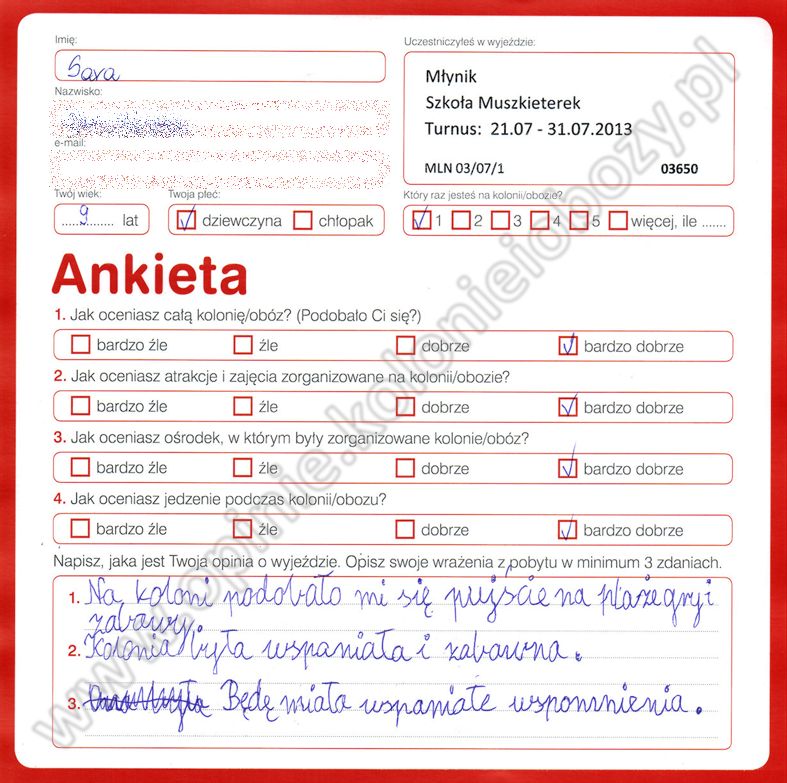 Imię:
Sara
Uczestniczyłeś w wyjeździe:
Młynik
Szkoła Muszkieterek
Turnus: 21.07 - 31.07.2013
MLN 03/07/1 03650
Nazwisko:
e-mail:
Twój wiek:
9 lat
Twoja płeć:
dziewczyna chłopak
Który raz jesteś na kolonii/obozie?
1 2 3 4 5 więcej, ile .......
Ankieta
1. Jak oceniasz całą kolonię/obóz? (Podobało Ci się?)
bardzo źle źle dobrze bardzo dobrze
2. Jak oceniasz atrakcje i zajęcia zorganizowane na kolonii/obozie?
bardzo źle źle dobrze bardzo dobrze
3. Jak oceniasz ośrodek, w którym były zorganizowane kolonie/obóz?
bardzo źle źle dobrze bardzo dobrze
4. Jak oceniasz jedzenie podczas kolonii/obozu?
bardzo źle źle dobrze bardzo dobrze
Napisz, jaka jest Twoja opinia o wyjeździe. Opisz swoje wrażenia z pobytu w minimum 3 zdaniach.
1. Na koloni podobało mi się pujście na plaże gry i
zabawy.
2. Kolonia była wspaniała i zabawna.
3. Będę miała wspaniałe wspomnienia.
www.opinie.kolonieiobozy.pl